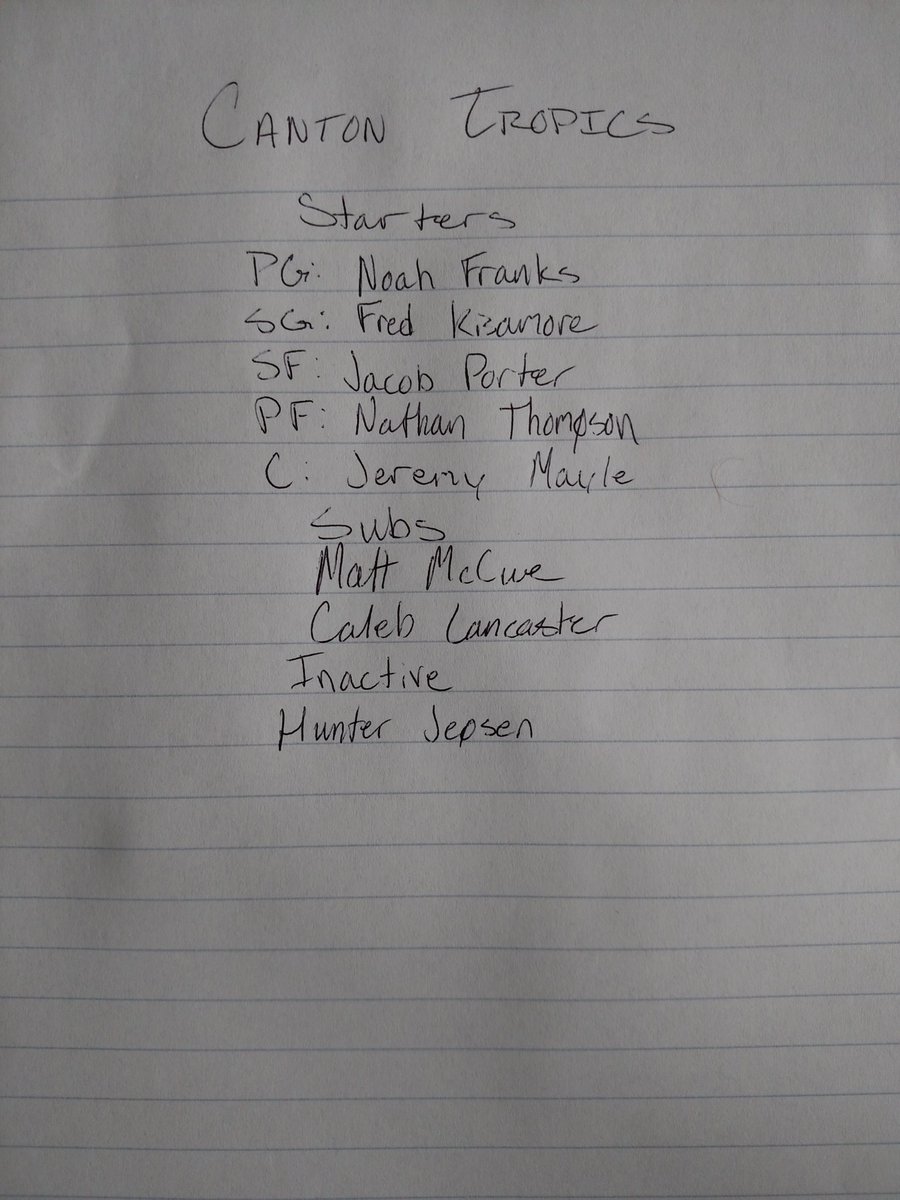 CANTON TROPICS
Starters
PG: Noah Franks
SG: Fred Kizamore
SF: Jacob Porter
PF: Nathan Thompson
C: Jeremy Mayle
Subs
Matt McCue
Caleb Lancaster
Inactive
Hunter Jepsen